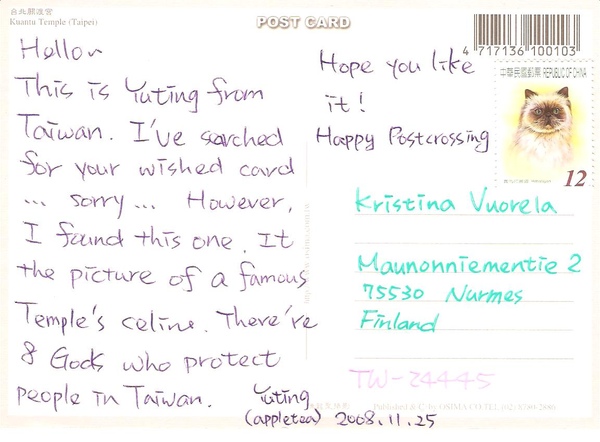 台北關渡宮
Kuantu Temple (Taipei)
POST CARD
4 717136 100103
中華民國郵票 REPUBLIC OF CHINA
12
Hello~
This is Yuting from
Taiwan. I've serched
for your wished card
... sorry... However,
I found this one. It
the picture of a famous
Temple's celine. There're
8 Gods who protect
people in Taiwan.
Yuting
(appletea) 2008.11.25
Hope you like
it!
Happy Postcrossing
Kristina Vuorela
Maunonniementie 2
75530 Nurmes
Finland
TW-24445